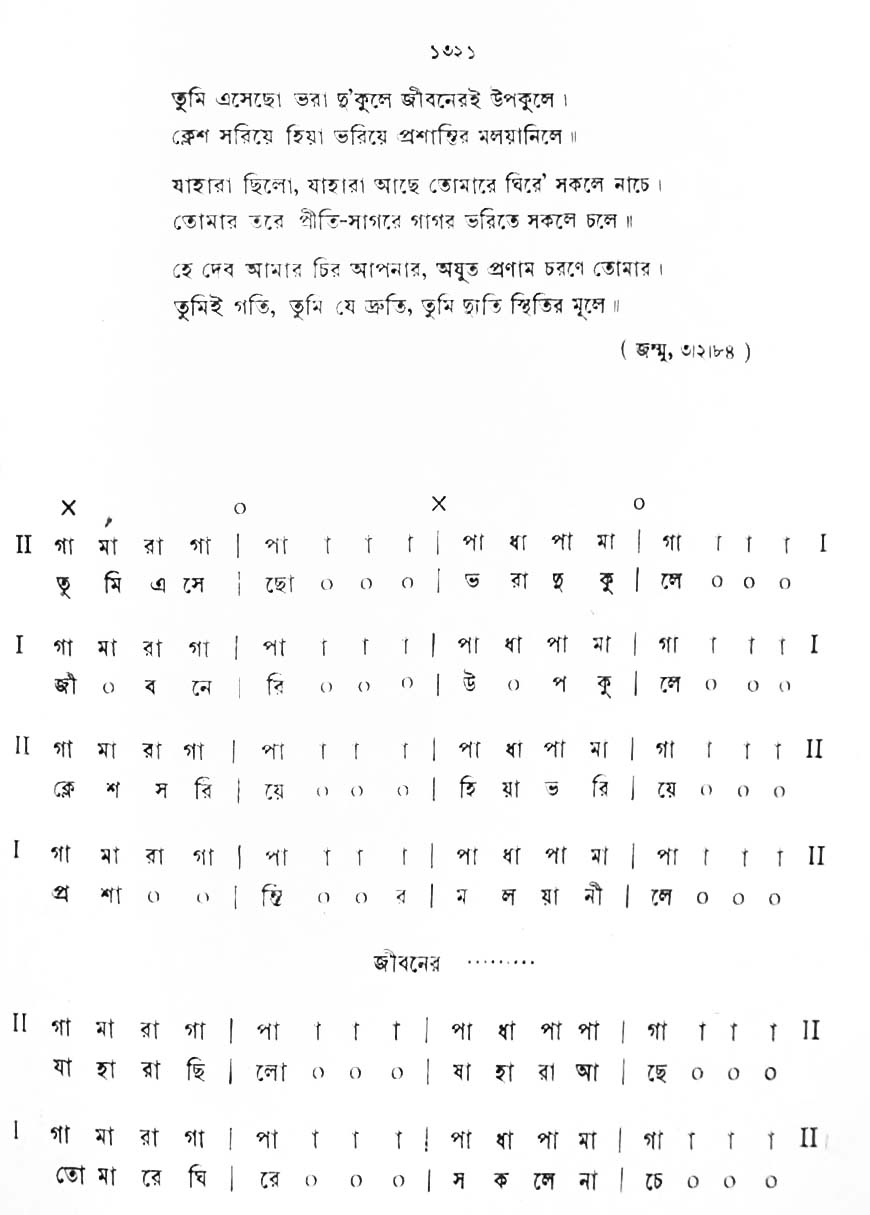 ১৩২১
তুমি এসেছো ভরা দু'কূলে জীবনেরই উপকূলে ।
ক্লেশ সরিয়ে হিয়া ভরিয়ে প্রশান্তির মলয়ানিলে ॥
যাহারা ছিলো, যাহারা আছে তোমারে ঘিরে' সকলে নাচে ।
তোমার তরে প্রীতি-সাগরে গাগর ভরিতে সকলে চলে ॥
হে দেব আমার চির আপনার, অযুত প্রণাম চরণে তোমার ।
তুমিই গতি, তুমি যে দ্রুতি, তুমি দ্যুতি স্থিতির মূলে ॥
( জম্মু, ৩।২।৮৪ )
× ০ × ০
II গা মা রা গা | পা া া া | পা ধা পা মা | গা া া া I
তু মি এ সে | ছো ০ ০ ০ | ভ রা দু কু | লে ০ ০ ০
I গা মা রা গা | পা া া া | পা ধা পা মা | গা া া া I
জী ০ ব নে | রি ০ ০ ০ | উ ০ প কু | লে ০ ০ ০
II গা মা রা গা | পা া া া | পা ধা পা মা | গা া া া II
ক্লে শ স রি | য়ে ০ ০ ০ | হি য়া ভ রি | য়ে ০ ০ ০
I গা মা রা গা | পা া া া | পা ধা পা মা | পা া া া II
প্র শা ০ ০ | ন্তি ০ ০ র | ম ল য়া নী | লে ০ ০ ০
জীবনের ·········
II গা মা রা গা | পা া া া | পা ধা পা পা | গা া া া II
যা হা রা ছি | লো ০ ০ ০ | যা হা রা আ | ছে ০ ০ ০
I গা মা রা গা | পা া া া | পা ধা পা মা | গা া া া II
তো মা রে ঘি | রে ০ ০ ০ | স ক লে না | চে ০ ০ ০